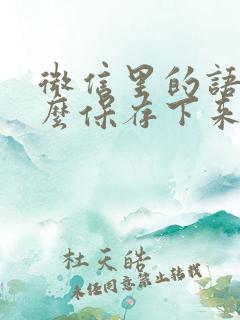 微信里的语
么保存下来
杜天皓
未经同意禁止转载